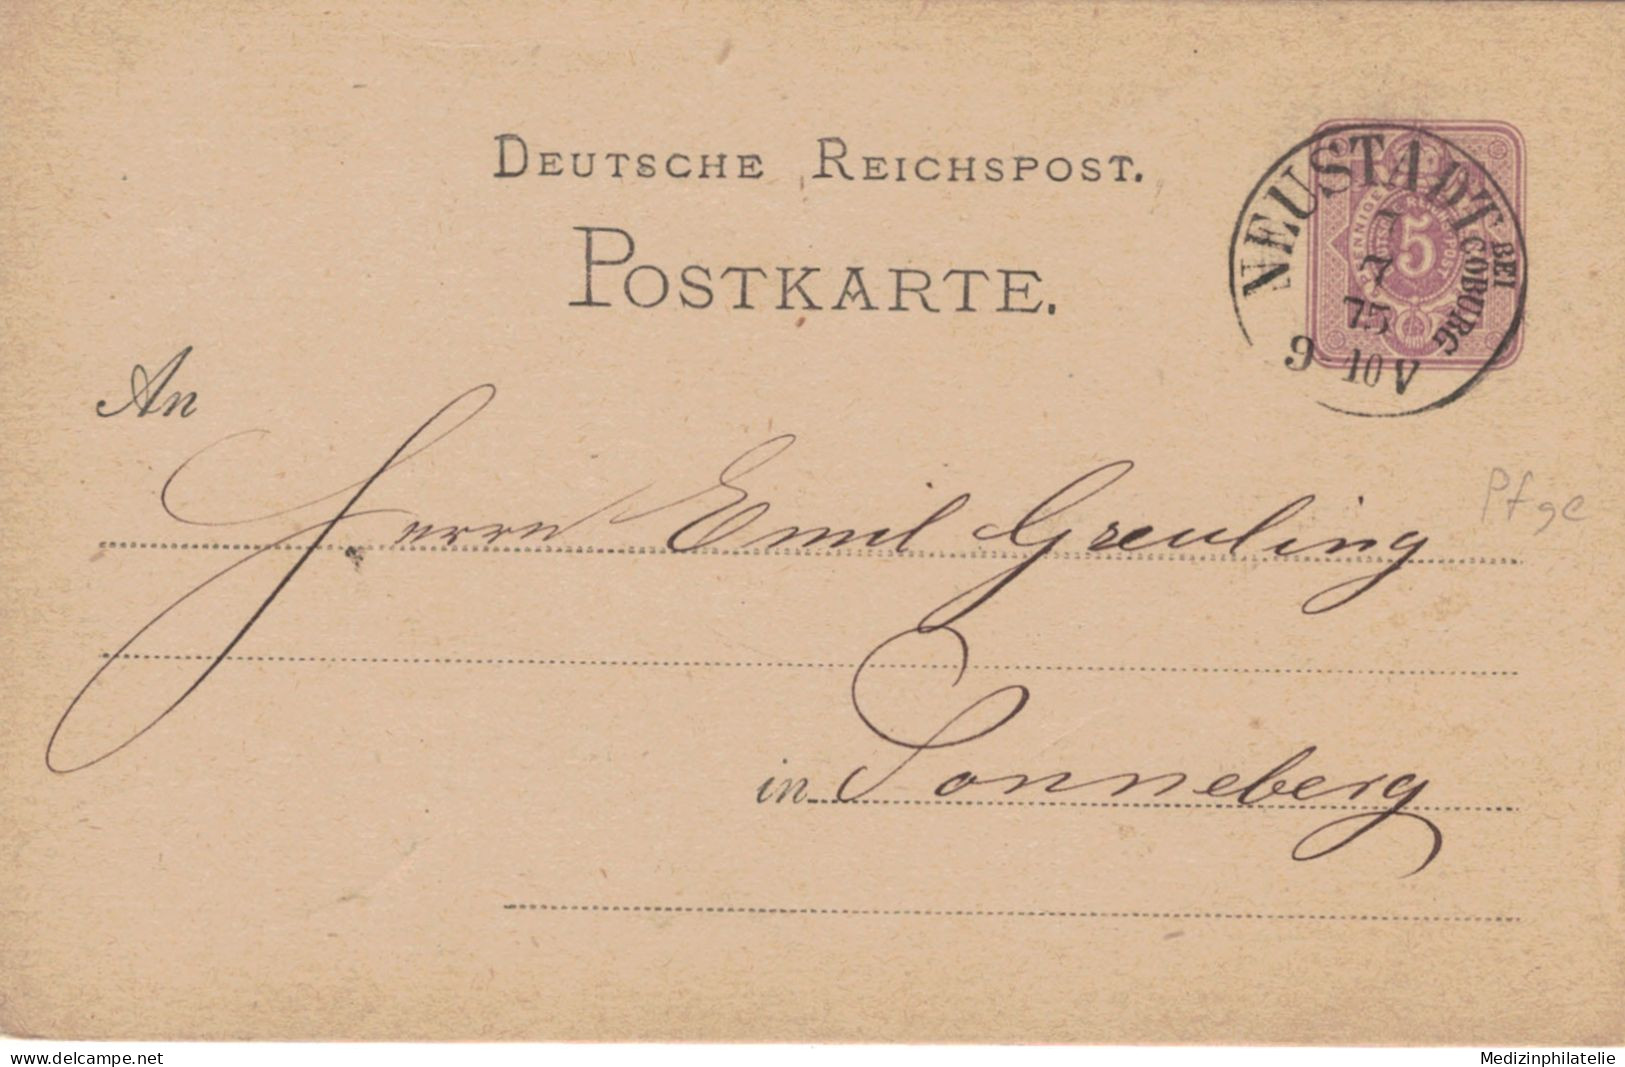 DEUTSCHE REICHSPOST.
POSTKARTE.
NEUSTADT
BEI
COBURG
7
75
9-10 V
5
An
Herrn Emil Greuling
Pfge
in Sonneberg
www.delcampe.net
Medizinphilatelie